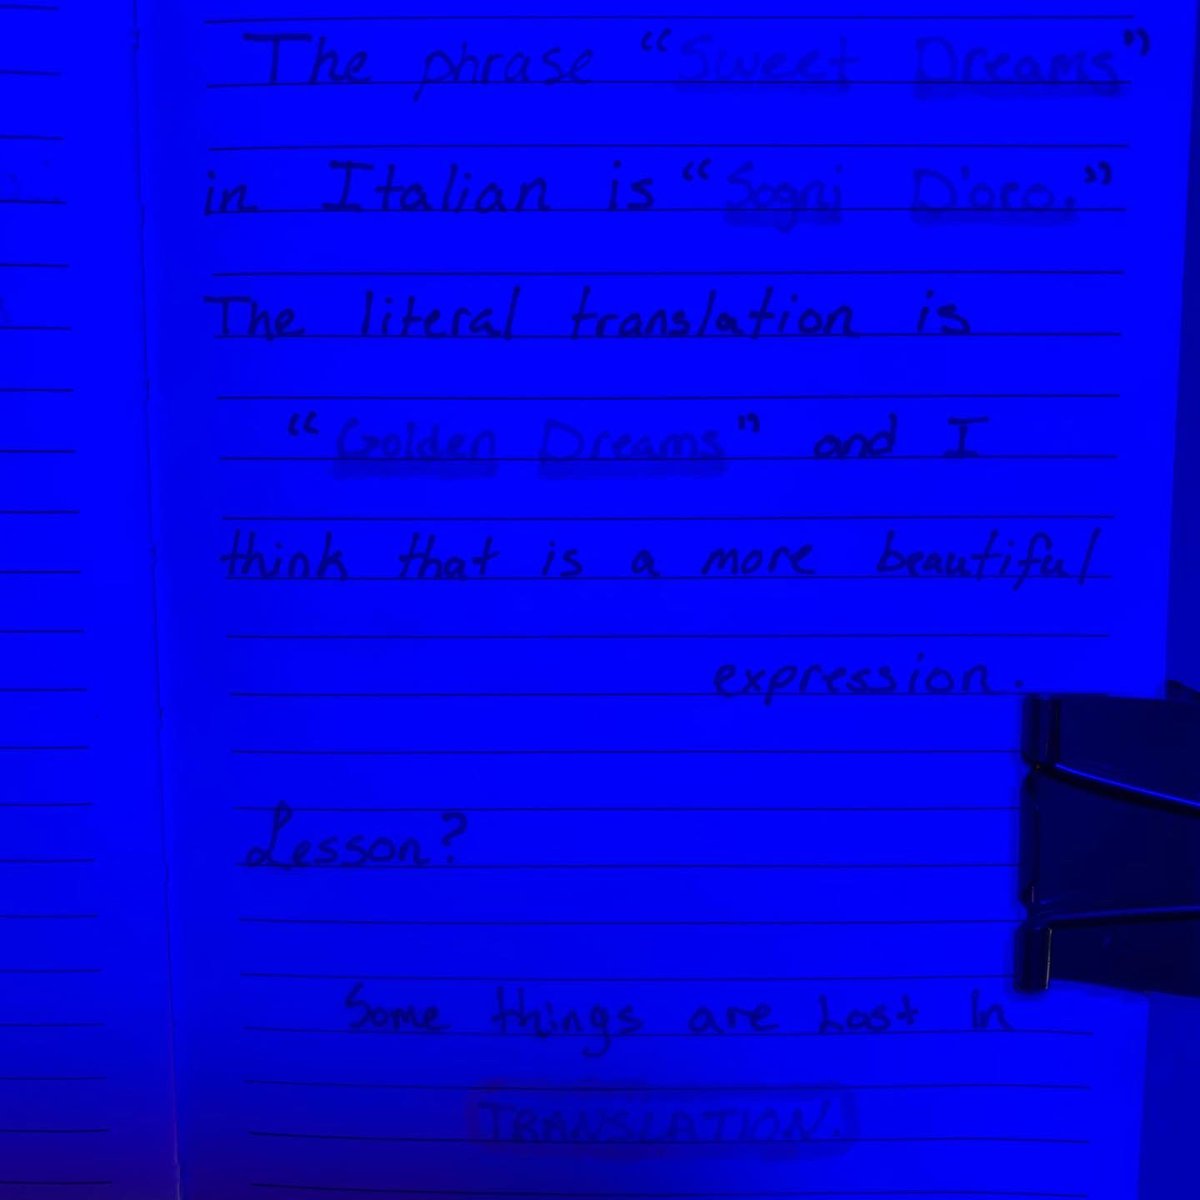 The phrase “Sweet Dreams”
in Italian is “Sogni D'oro.”
The literal translation is
“Golden Dreams” and I
think that is a more beautiful
expression.
Lesson?
Some things are Lost In
TRANSLATION.